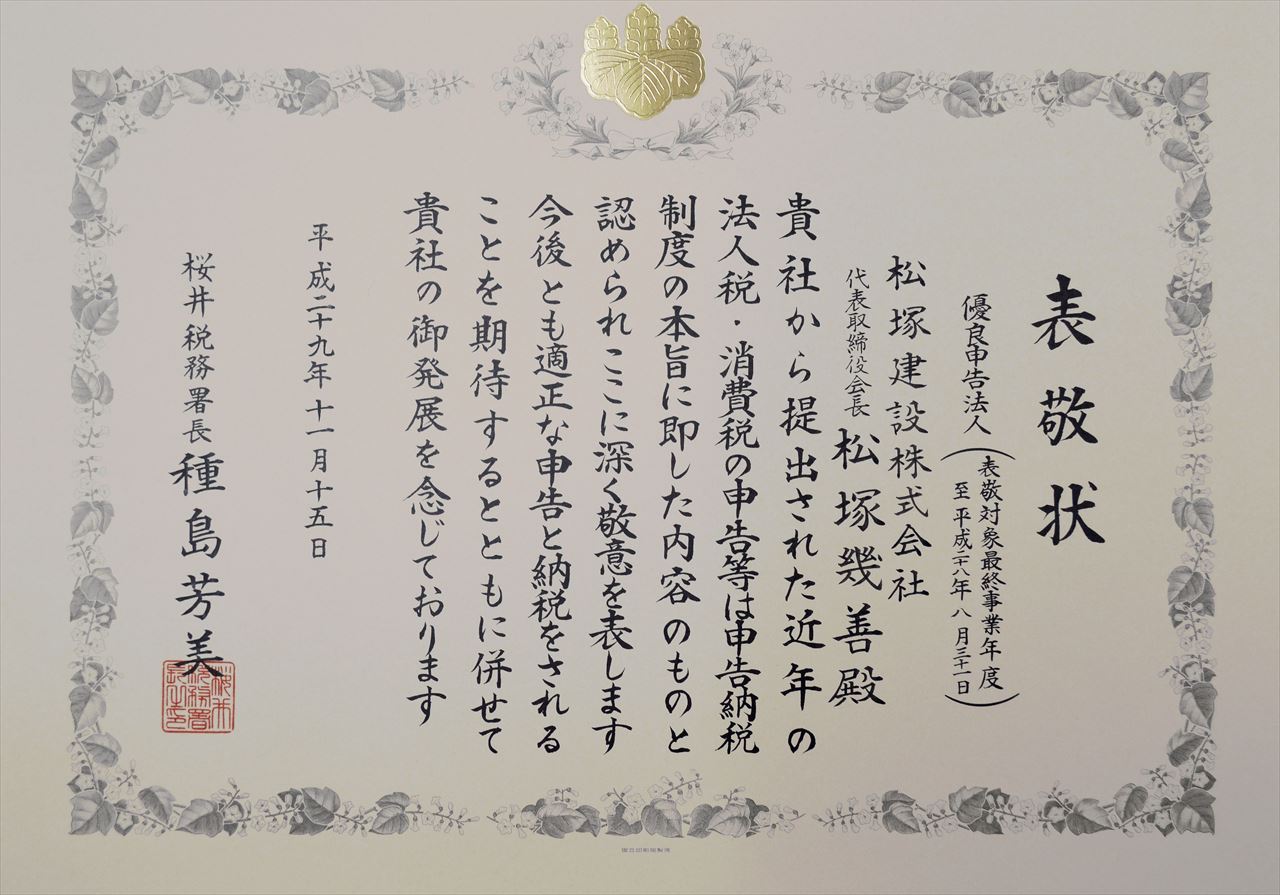 表敬状
優良申告法人
(表敬対象最終事業年度
至 平成二十八年八月三十一日)
松塚建設株式会社
代表取締役会長 松塚幾善殿
貴社から提出された近年の
法人税・消費税の申告等は申告納税
制度の本旨に即した内容のものと
認められここに深く敬意を表します
今後とも適正な申告と納税をされる
ことを期待するとともに併せて
貴社の御発展を念じております
平成二十九年十一月十五日
桜井税務署長 種島芳美
桜井
税務署
長之印